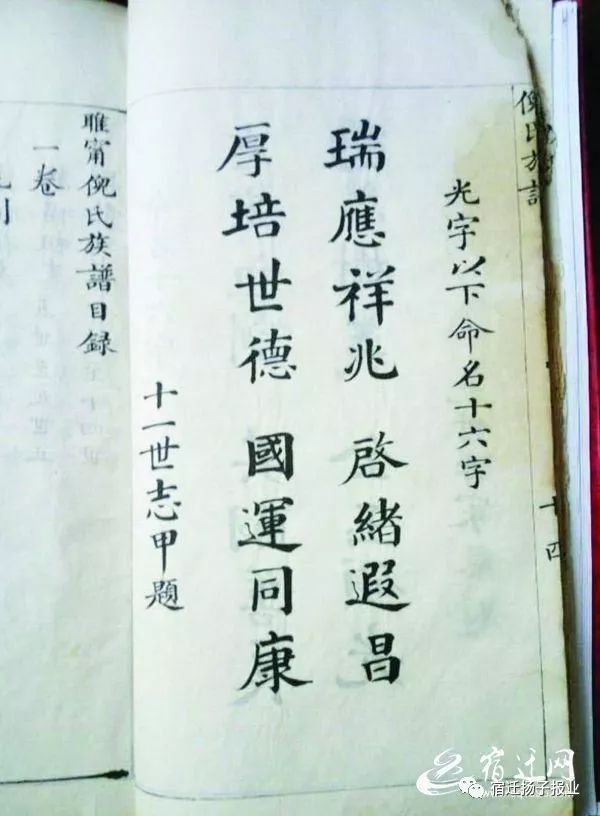 倪氏族譜
十四
光字以下命名十六字
瑞應祥兆 啓緒遐昌
厚培世德 國運同康
十一世志甲題
睢甯倪氏族譜目錄
一卷
宿迁网
宿迁扬子报业